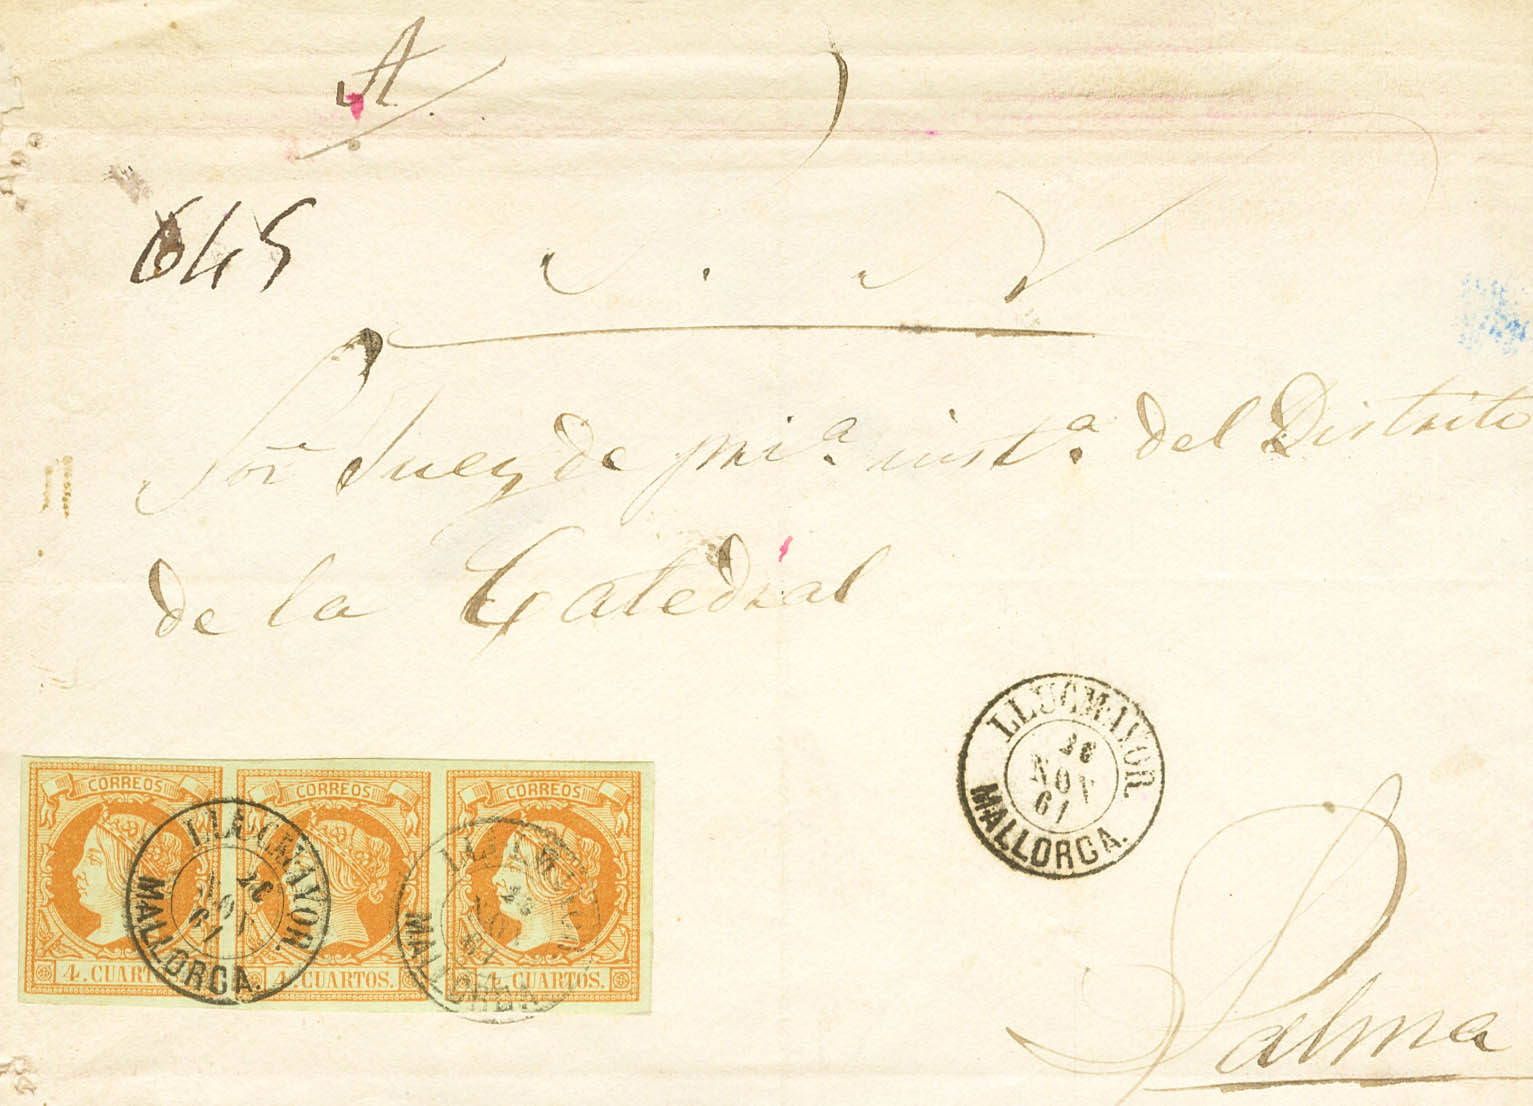 A
645
S. N
Sor. Juez de pmi.a inst.a del Distrito
de la Catedral
LLUCMAYOR
26
NOV
61
MALLORCA.
CORREOS
CORREOS
CORREOS
LLUCMAYOR.
26
NOV
61
MALLORCA.
26
NOV
61
MALLORCA
4. CUARTOS.
4. CUARTOS.
4. CUARTOS.
Palma